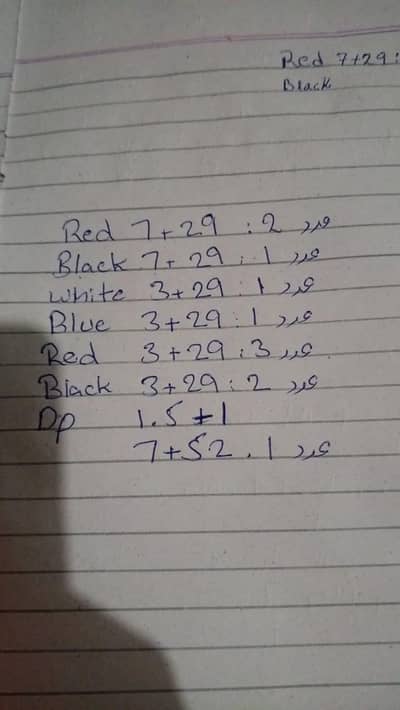 Red 7+29:
Black
Red 7+29 : 2 عدد
Black 7+29 : 1 عدد
White 3+29 : 1 عدد
Blue 3+29 : 1 عدد
Red 3+29 : 3 عدد
Black 3+29 : 2 عدد
Dp 1.5+1
7+52 . 1 عدد